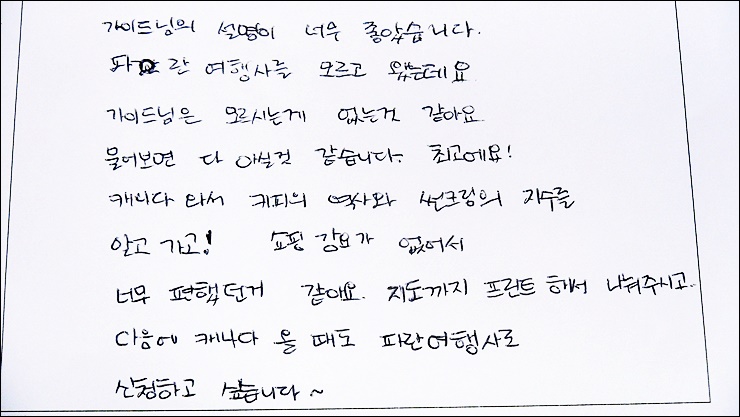 가이드님의 설명이 너무 좋았습니다.
파란 여행사를 모르고 왔는데요
가이드님은 모르시는게 없는것 같아요
물어보면 다 아실것 같습니다. 최고에요!
캐나다 와서 커피의 역사와 썬크림의 지수를
알고 가고! 쇼핑 강요가 없어서
너무 편했던거 같아요. 지도까지 프린트 해서 나눠주시고.
다음에 캐나다 올 때도 파란여행사로
신청하고 싶습니다~